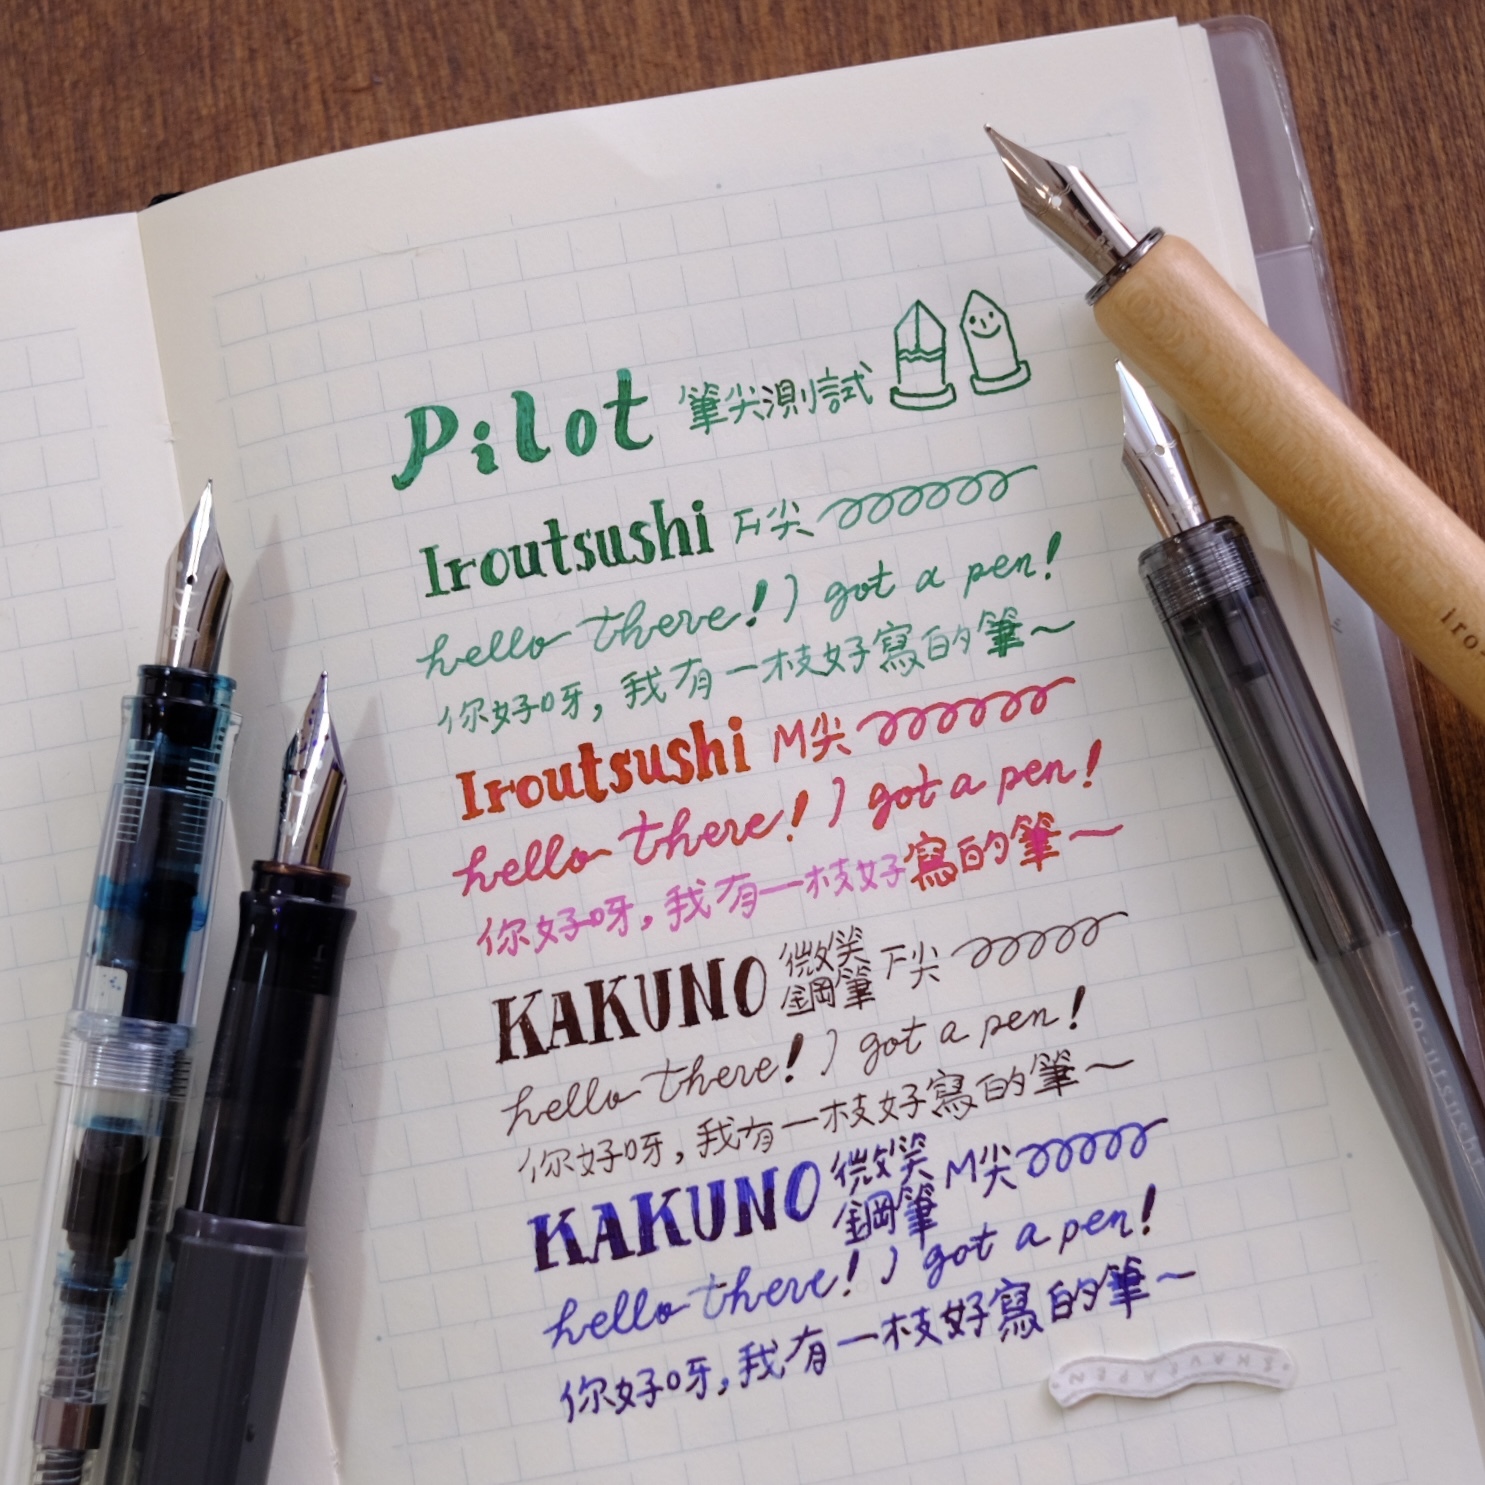 Pilot 筆尖測試
Iroutsushi F尖
hello there! I got a pen!
你好呀，我有一枝好寫的筆～
Iroutsushi M尖
hello there! I got a pen!
你好呀，我有一枝好寫的筆～
KAKUNO 微笑鋼筆 F尖
hello there! I got a pen!
你好呀，我有一枝好寫的筆～
KAKUNO 微笑鋼筆 M尖
hello there! I got a pen!
你好呀，我有一枝好寫的筆～
iro-utsushi